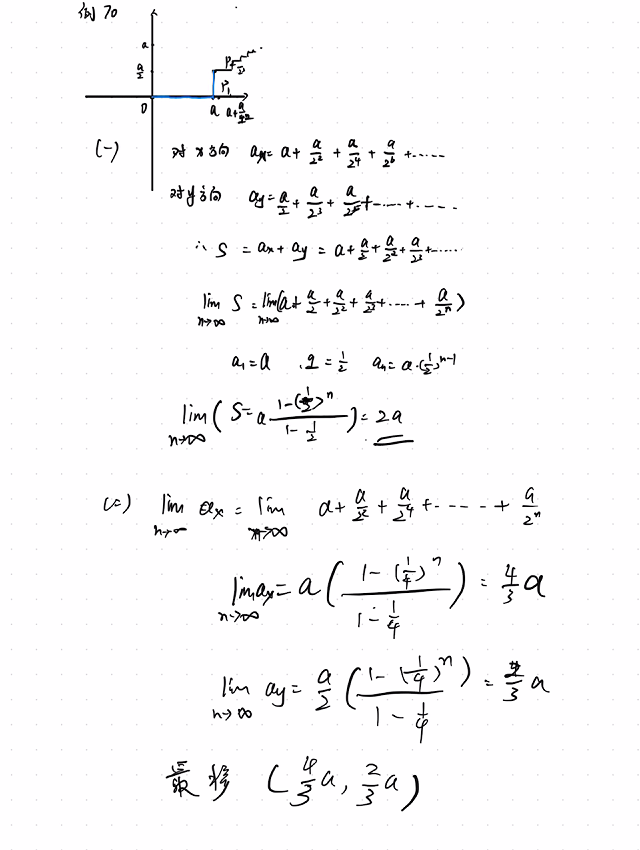 例 70
a
a/2
P₂
P₁
0 a a+a/2²
(一) 对x方向 aₓ= a+ a/2² + a/2⁴ + a/2⁶ +......
对y方向 ay= a/2 + a/2³ + a/2⁵ +......+......
∴ S = ax + ay = a+ a/2 + a/2² + a/2³ +......
lim n→∞ S = lim n→∞ (a+ a/2 + a/2² + a/2³ +......+ a/2ⁿ)
a₁=a q=1/2 aₙ=a·(1/2)ⁿ⁻¹
lim n→∞ ( S= a (1-(1/2)ⁿ)/(1-1/2) ) = 2a
(二) lim n→∞ ax = lim n→∞ a+ a/2² + a/2⁴ +......+ a/2ⁿ
lim n→∞ ax = a ( (1-(1/4)ⁿ)/(1-1/4) ) = 4/3 a
lim n→∞ ay = a/2 ( (1-(1/4)ⁿ)/(1-1/4) ) = 2/3 a
最终 (4/3 a, 2/3 a)